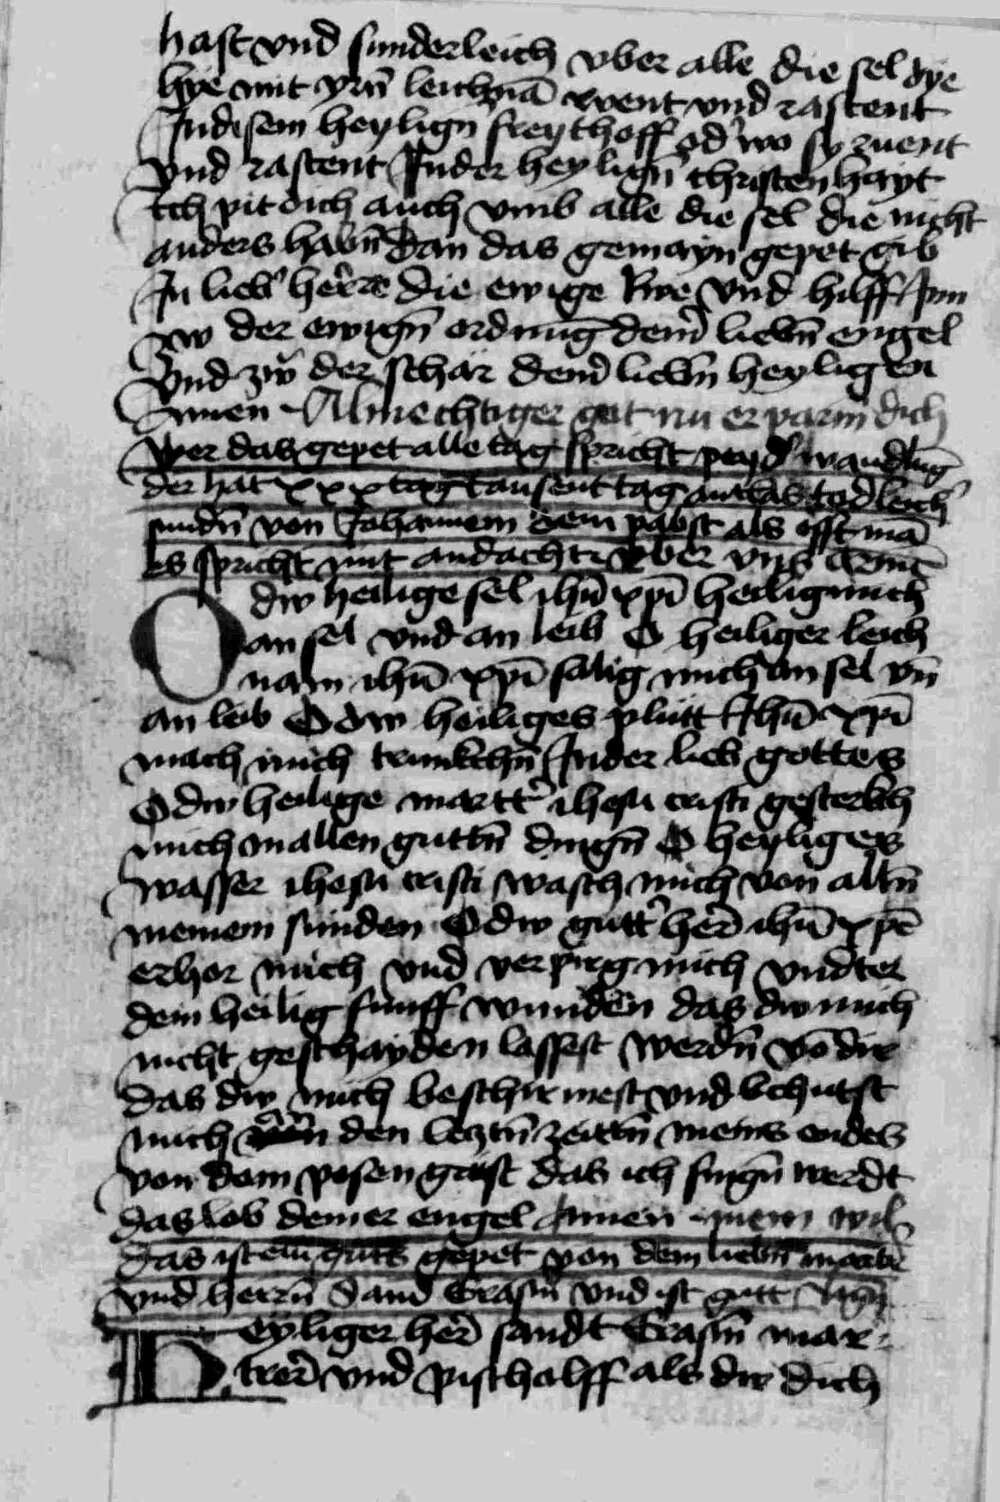 hast vnd sunderleich vber alle die sel dye
hye mit yrn̄ leichnā rwent vnd rastent
Jn disem heylign̄ freythoff od' wo sy ruent
vnd rastent Jn der heylign̄ christenhayt
Jch pit dich auch vmb alle die sel die nicht
anders habn̄ dan das gemayn gepet gib
Jn lieb' herre die ewige Rwe vnd hilff Jnn
zw der ewign̄ ordnuḡ dein' liebn̄ engel
vnd zw der schar dein' liebn̄ heyligen
Amen Almechtiger got nu erparm dich
Wer das gepet alle tag spricht
der hat xxx tag tausent tag antlas todleich'
sundn̄ von Johannem dem pabst als offt mā
es spricht mit andacht vber vns
O dw heilige sel ihū xp̄i heilig mich
an sel vnd an leib O heiliger leich
nam ihū xp̄i salig mich an sel vn̄
an leib O dw heiliges plutt Jhū xp̄i
mach mich trunkchn̄ Jn der lieb gottes
O dw heilige martt' ihesu cristi gesterkch
mich in allen guttn̄ dingn̄ O heyliges
wasser ihesu cristi wasch mich von alln̄
meinem sunden O dw gutt' her' ihū xp̄e
erhor mich vnd verpirg mich vndter
dein heilig funff wunden das dw mich
nicht geschayden lassest werdn̄ vō dir
das dw mich beschirmest vnd behutst
mich den leztn̄ zeittn̄ meins endes
von dem posen geist das ich singn̄ werdt
das lob deiner engel Amen
das ist ein guts gepet von dem liebn̄ martr'
vnd herrn̄ Sand Erasm̄ vnd ist gutt
Heyliger her' sandt Erasm̄ mar-
trer' vnd pischolff als dw dich